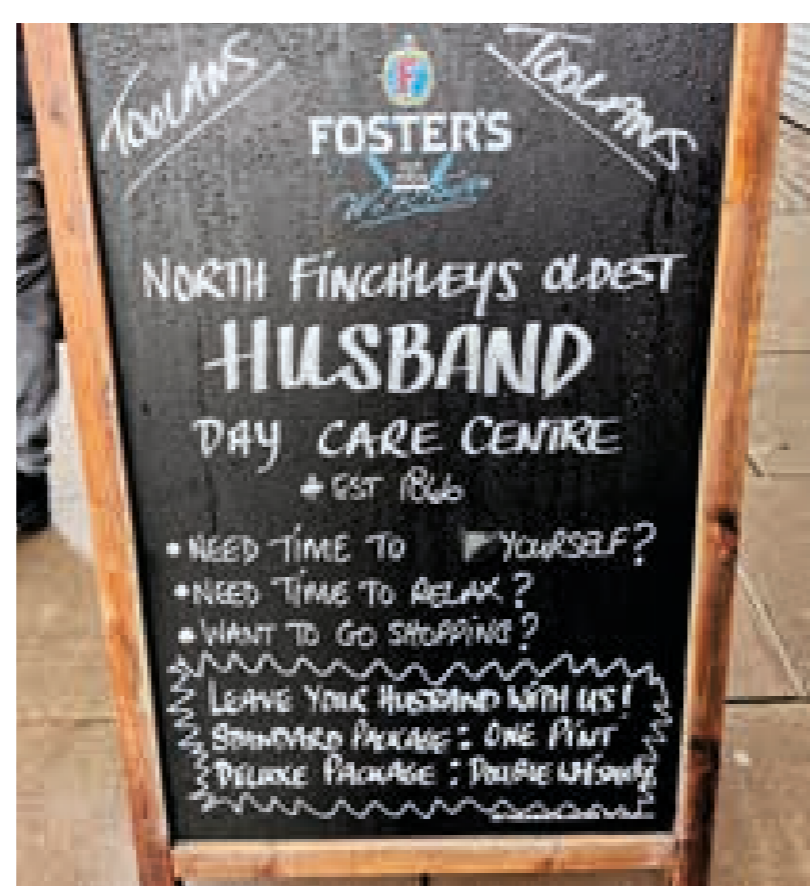 TOOLANS
TOOLANS
F
FOSTER'S
NORTH FINCHLEYS OLDEST
HUSBAND
DAY CARE CENTRE
EST 1866
• NEED TIME TO YOURSELF?
• NEED TIME TO RELAX?
• WANT TO GO SHOPPING?
LEAVE YOUR HUSBAND WITH US!
STANDARD PACKAGE: ONE PINT
DELUXE PACKAGE: DOUBLE WHISKEY